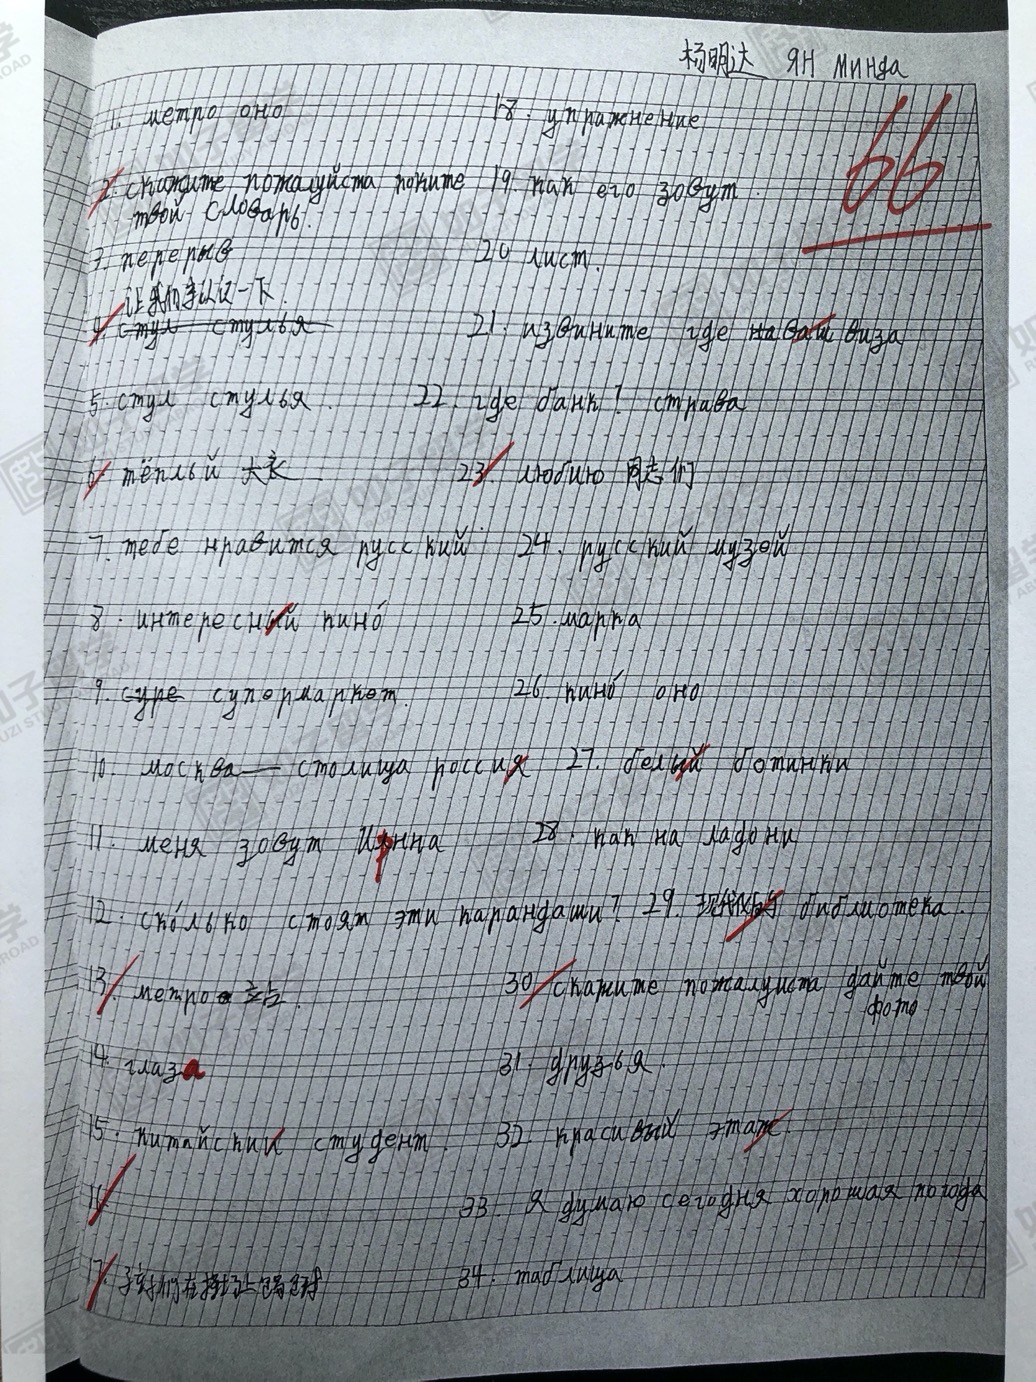 杨明达 ЯН МИНДА
66
1. метро оно
18. упражнение
2. скажите пожалуйста
19. как его зовут
твой словарь.
3. перерыв
20 лист.
让我们来认识一下.
4. стул стулья
21. извините где виза
5. стул стулья.
22. где банк!
6. тёплый 大衣
23. люблю 同志们
7. тебе нравится русский
24. русский музей
8. интересный кино́
25. марка
9. суре супермаркет.
26. кино́ оно
10. москва — столица россия
27. белый ботинки
11. меня зовут
28. как на ладони
12. ско́лько стоят эти карандаши?
29. библиотека.
13. метро 站.
30. скажите пожалуиста дайте твой
фото
14. глаза
31. друзья.
15. китайский студент.
32. красивый этаж.
16
33 Я думаю сегодня хорошая погода
17.
34. таблица